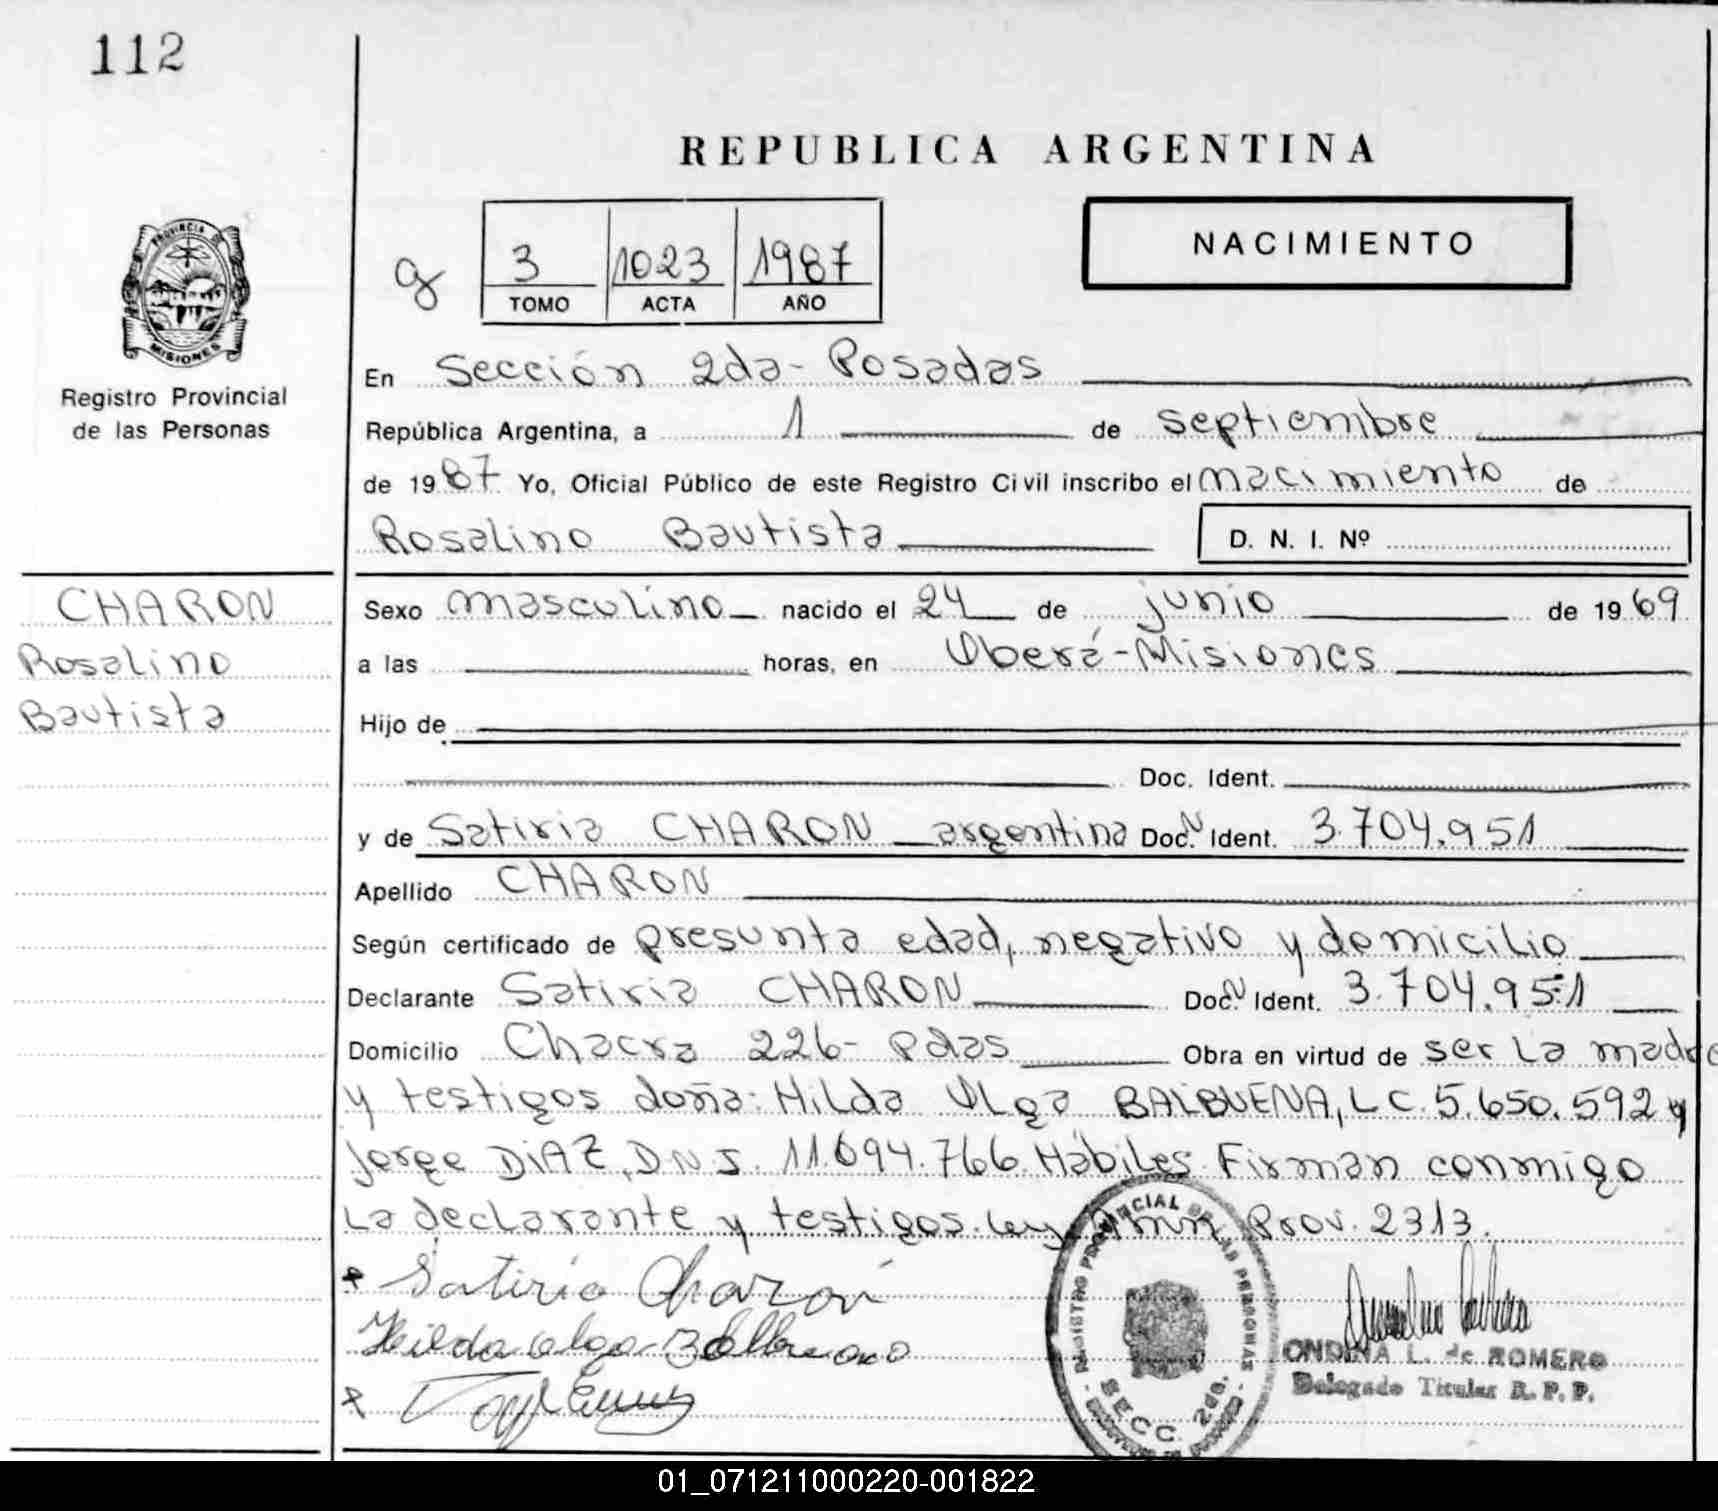 112
REPUBLICA ARGENTINA
NACIMIENTO
3 1023 1987
TOMO ACTA AÑO
PROVINCIA DE
MISIONES
Registro Provincial
de las Personas
En Sección 2da - Posadas
República Argentina, a 1 de septiembre
de 1987 Yo, Oficial Público de este Registro Civil inscribo el nacimiento de
Rosalino Bautista D. N. I. Nº
CHARON
Rosalino
Bautista
Sexo masculino nacido el 24 de junio de 1969
a las horas, en Oberá - Misiones
Hijo de
Doc. Ident.
y de Satiria CHARON argentina Doc. N Ident. 3.704.951
Apellido CHARON
Según certificado de presunta edad, negativo y domicilio
Declarante Satiria CHARON Doc. N Ident. 3.704.951
Domicilio Chacra 226 - Pdas Obra en virtud de ser la madre
y testigos doña: Hilda Olga BALBUENA, L C. 5.650.592 y
Jorge DIAZ, D N I. 11.694.766. Hábiles. Firman conmigo
la declarante y testigos. Ley Amn Prov. 2313.
Satiria Charon
Hilda Olga Balbuena
REGISTRO PROVINCIAL DE LAS PERSONAS
SECC. 2da.
ONDINA L. de ROMERO
Delegado Titular R. P. P.
01_071211000220-001822